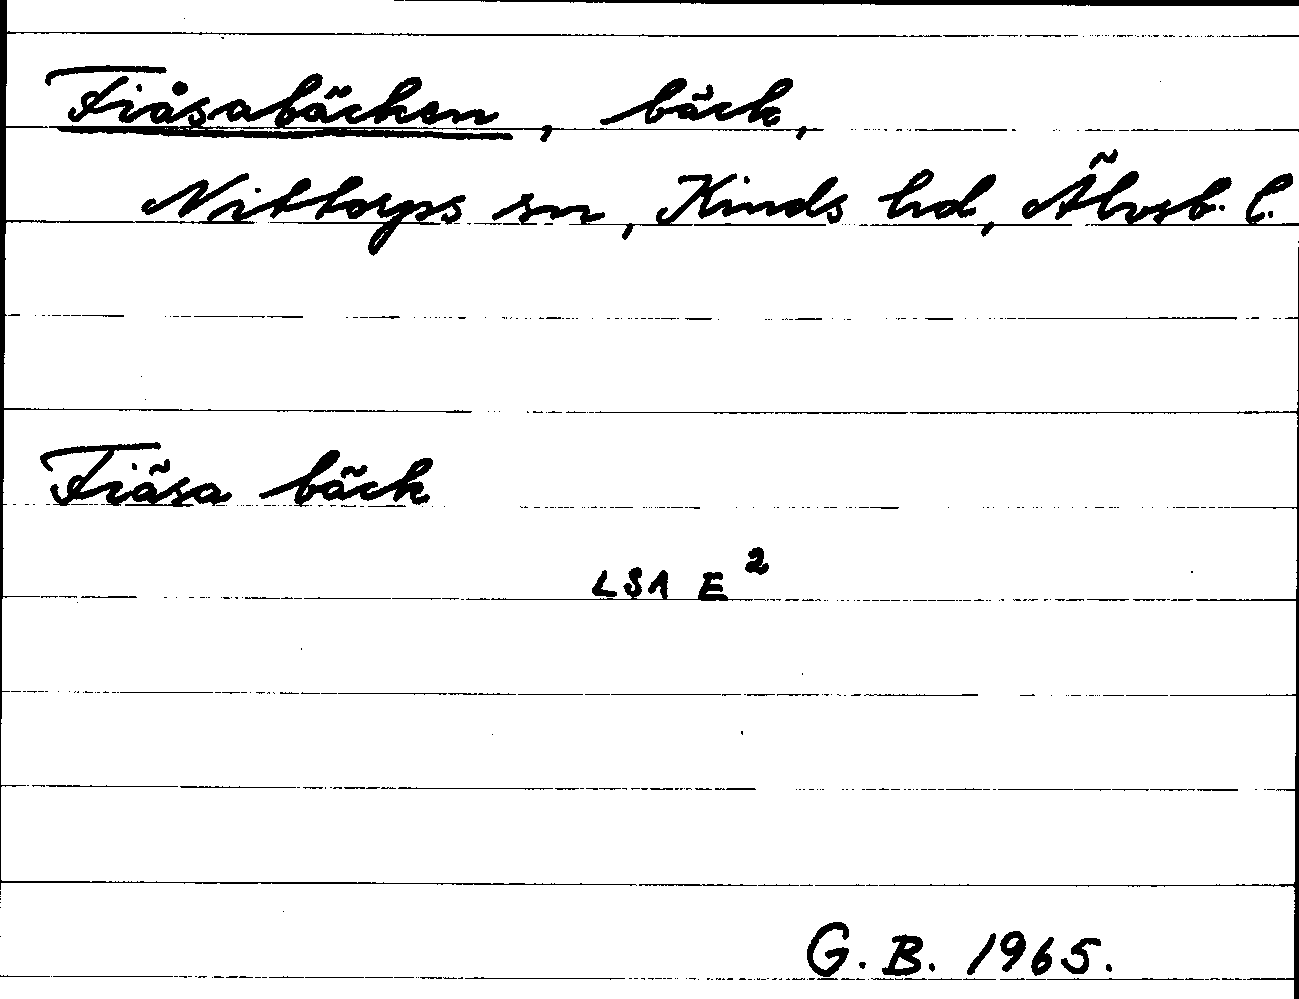 Tiåsabäcken, bäck,
Nittorps sn, Kinds hd, Älvsb. l.
Tiäsa bäck
LSA E²
G. B. 1965.